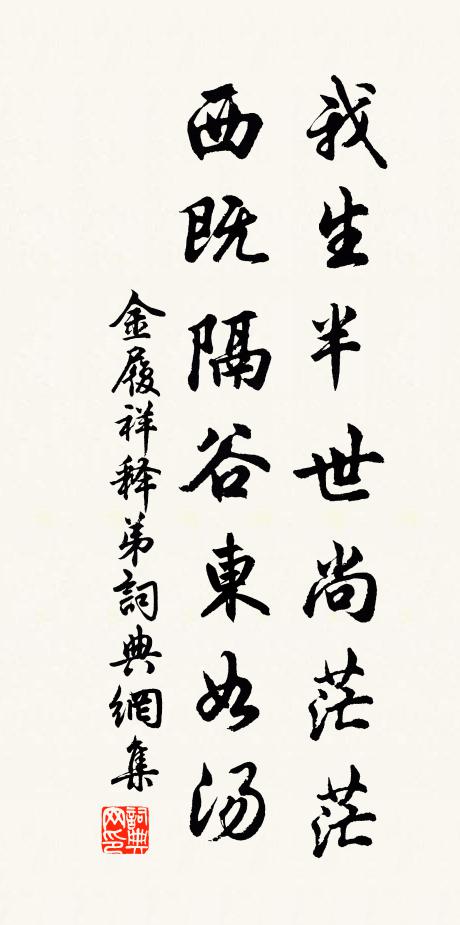 我生半世尚茫茫
西既隔谷東如汤
金履祥释弟詞典網集
詞典网印